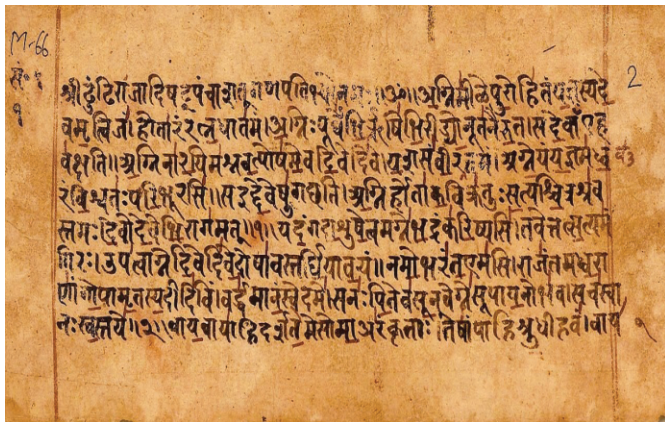 M-66
2
१
श्रीढुंढिराजादिषट्पंचाशत्गणपतिभ्योनमः॥ॐ॥अग्निमीळेपुरोहितंयज्ञस्यदे
वमृत्विजं।होतारंरत्नधातमं।अग्निःपूर्वेभिर्ऋषिभिरीड्योनूतनैरुत।सदेवाँएह
वक्षति॥अग्निनारयिमश्नवत्पोषमेवदिवेदिवे।यशसंवीरवत्तमं।अग्नेयंयज्ञमध्व
रंविश्वतःपरिभूरसि।सइद्देवेषुगच्छति।अग्निर्होताकविक्रतुःसत्यश्चित्रश्रव
स्तमः।देवोदेवेभिरागमत्॥१॥यदंगदाशुषेत्वमग्नेभद्रंकरिष्यसि।तवेत्तत्सत्यमं
गिरः।उपत्वाग्नेदिवेदिवेदोषावस्तर्धियावयं॥नमोभरंतएमसि।राजंतमध्वरा
णांगोपामृतस्यदीदिविं।वर्द्धमानंस्वेदमे।सनःपितेवसूनवेग्नेसूपायनोभव।सचस्वा
नःस्वस्तये॥२॥वायवायाहिदर्शतेमेसोमाअरंकृताः।तेषांपाहिश्रुधीहवं।वाय